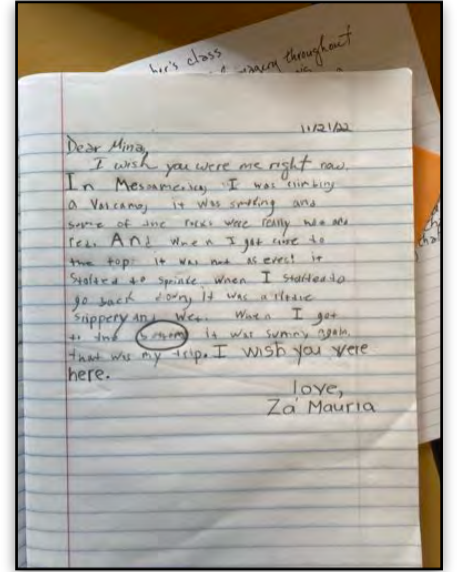 her's class
throughout
11/21/22
Dear Mina,
I wish you were me right now.
In Mesoamerica, I was climbing
a Volcano, it was smoking and
some of the rocks were really hot and
red. And when I got close to
the top it was not as
it
started to sprinkle when I started to
go back down, it was a little
slippery and wet. When I got
to the it was sunny again.
that was my trip. I wish you were
here.
love,
Za'Mauria